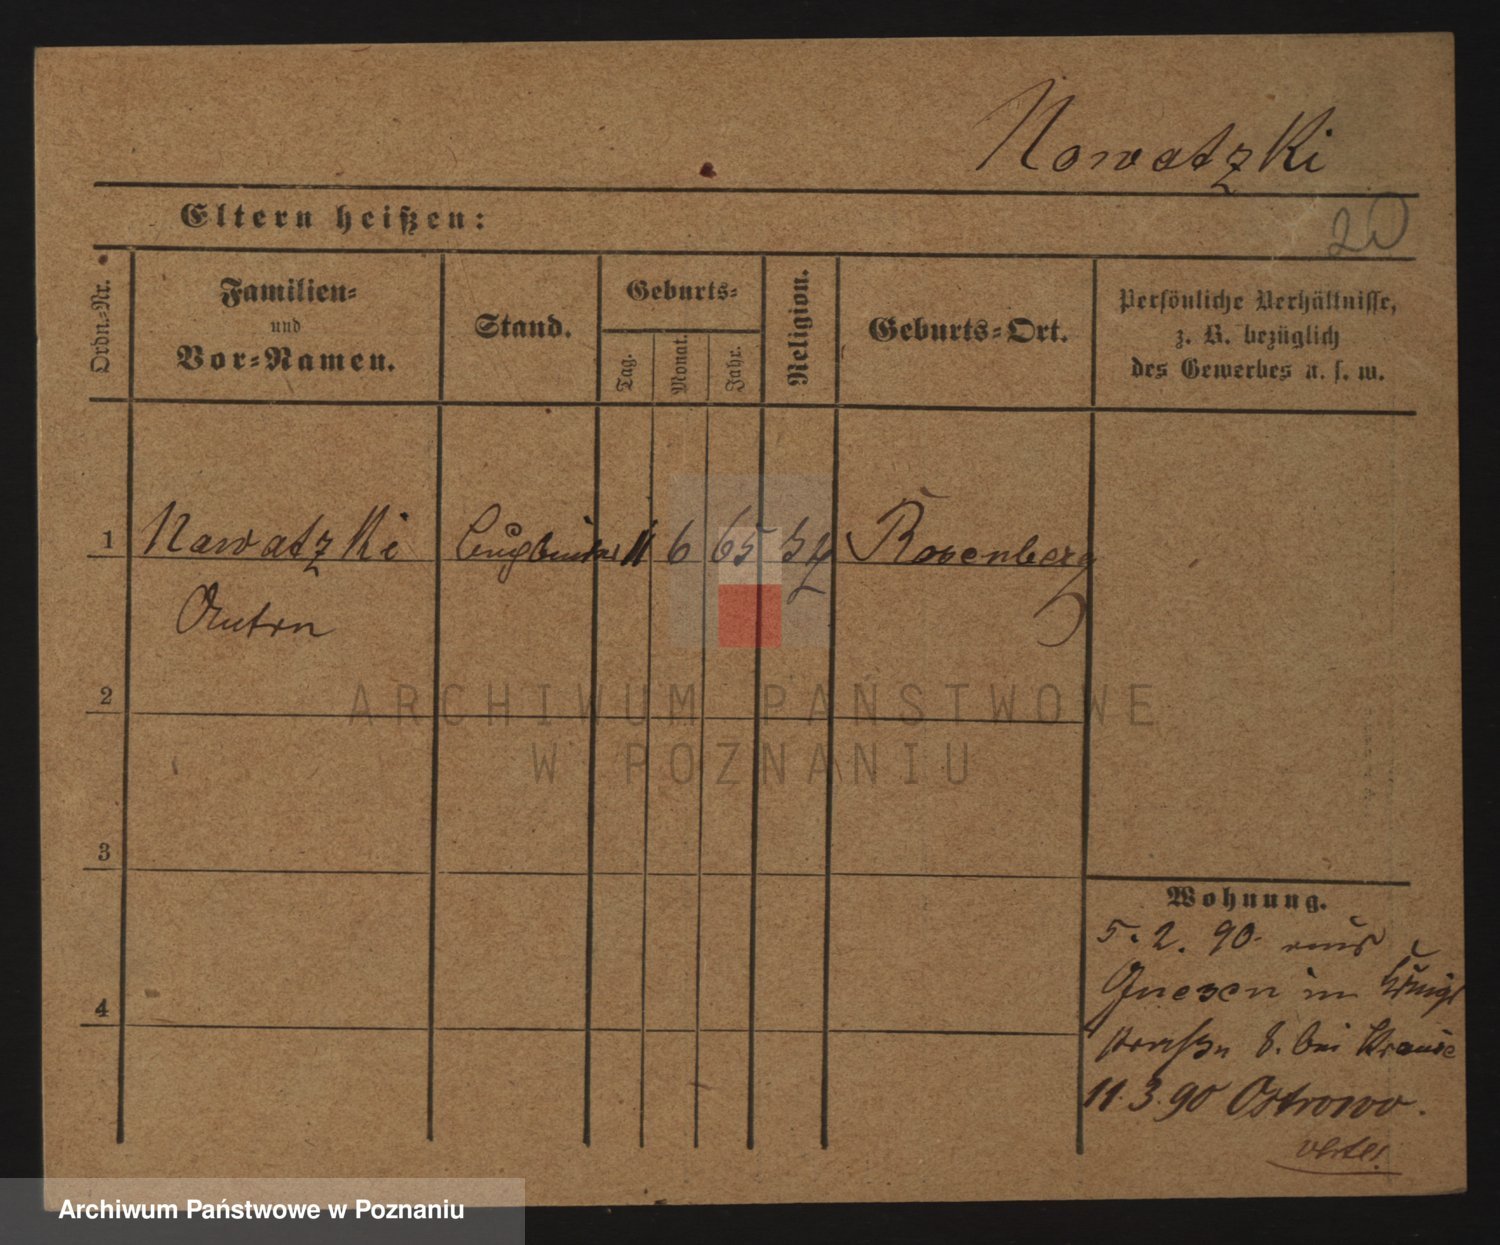 Nowatzki
Eltern heißen:
20
Ordn.-Nr.
Familien-
und
Vor-Namen.
Stand.
Geburts-
Tag.
Monat.
Jahr.
Religion.
Geburts-Ort.
Persönliche Verhältnisse,
z. B. bezüglich
des Gewerbes u. s. w.
1
Nawatzki
11 6 65
Rosenberg
Anton
2
ARCHIWUM PAŃSTWOWE
W POZNANIU
3
Wohnung.
5. 2. 90. aus
Gnesen in Königs
straße 8. bei Krause
4
11. 3. 90 Ostrowo.
Archiwum Państwowe w Poznaniu